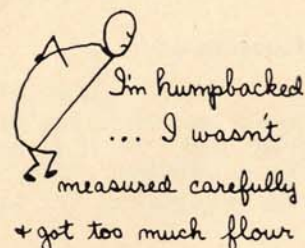 I'm humpbacked
... I wasn't
measured carefully
+ got too much flour